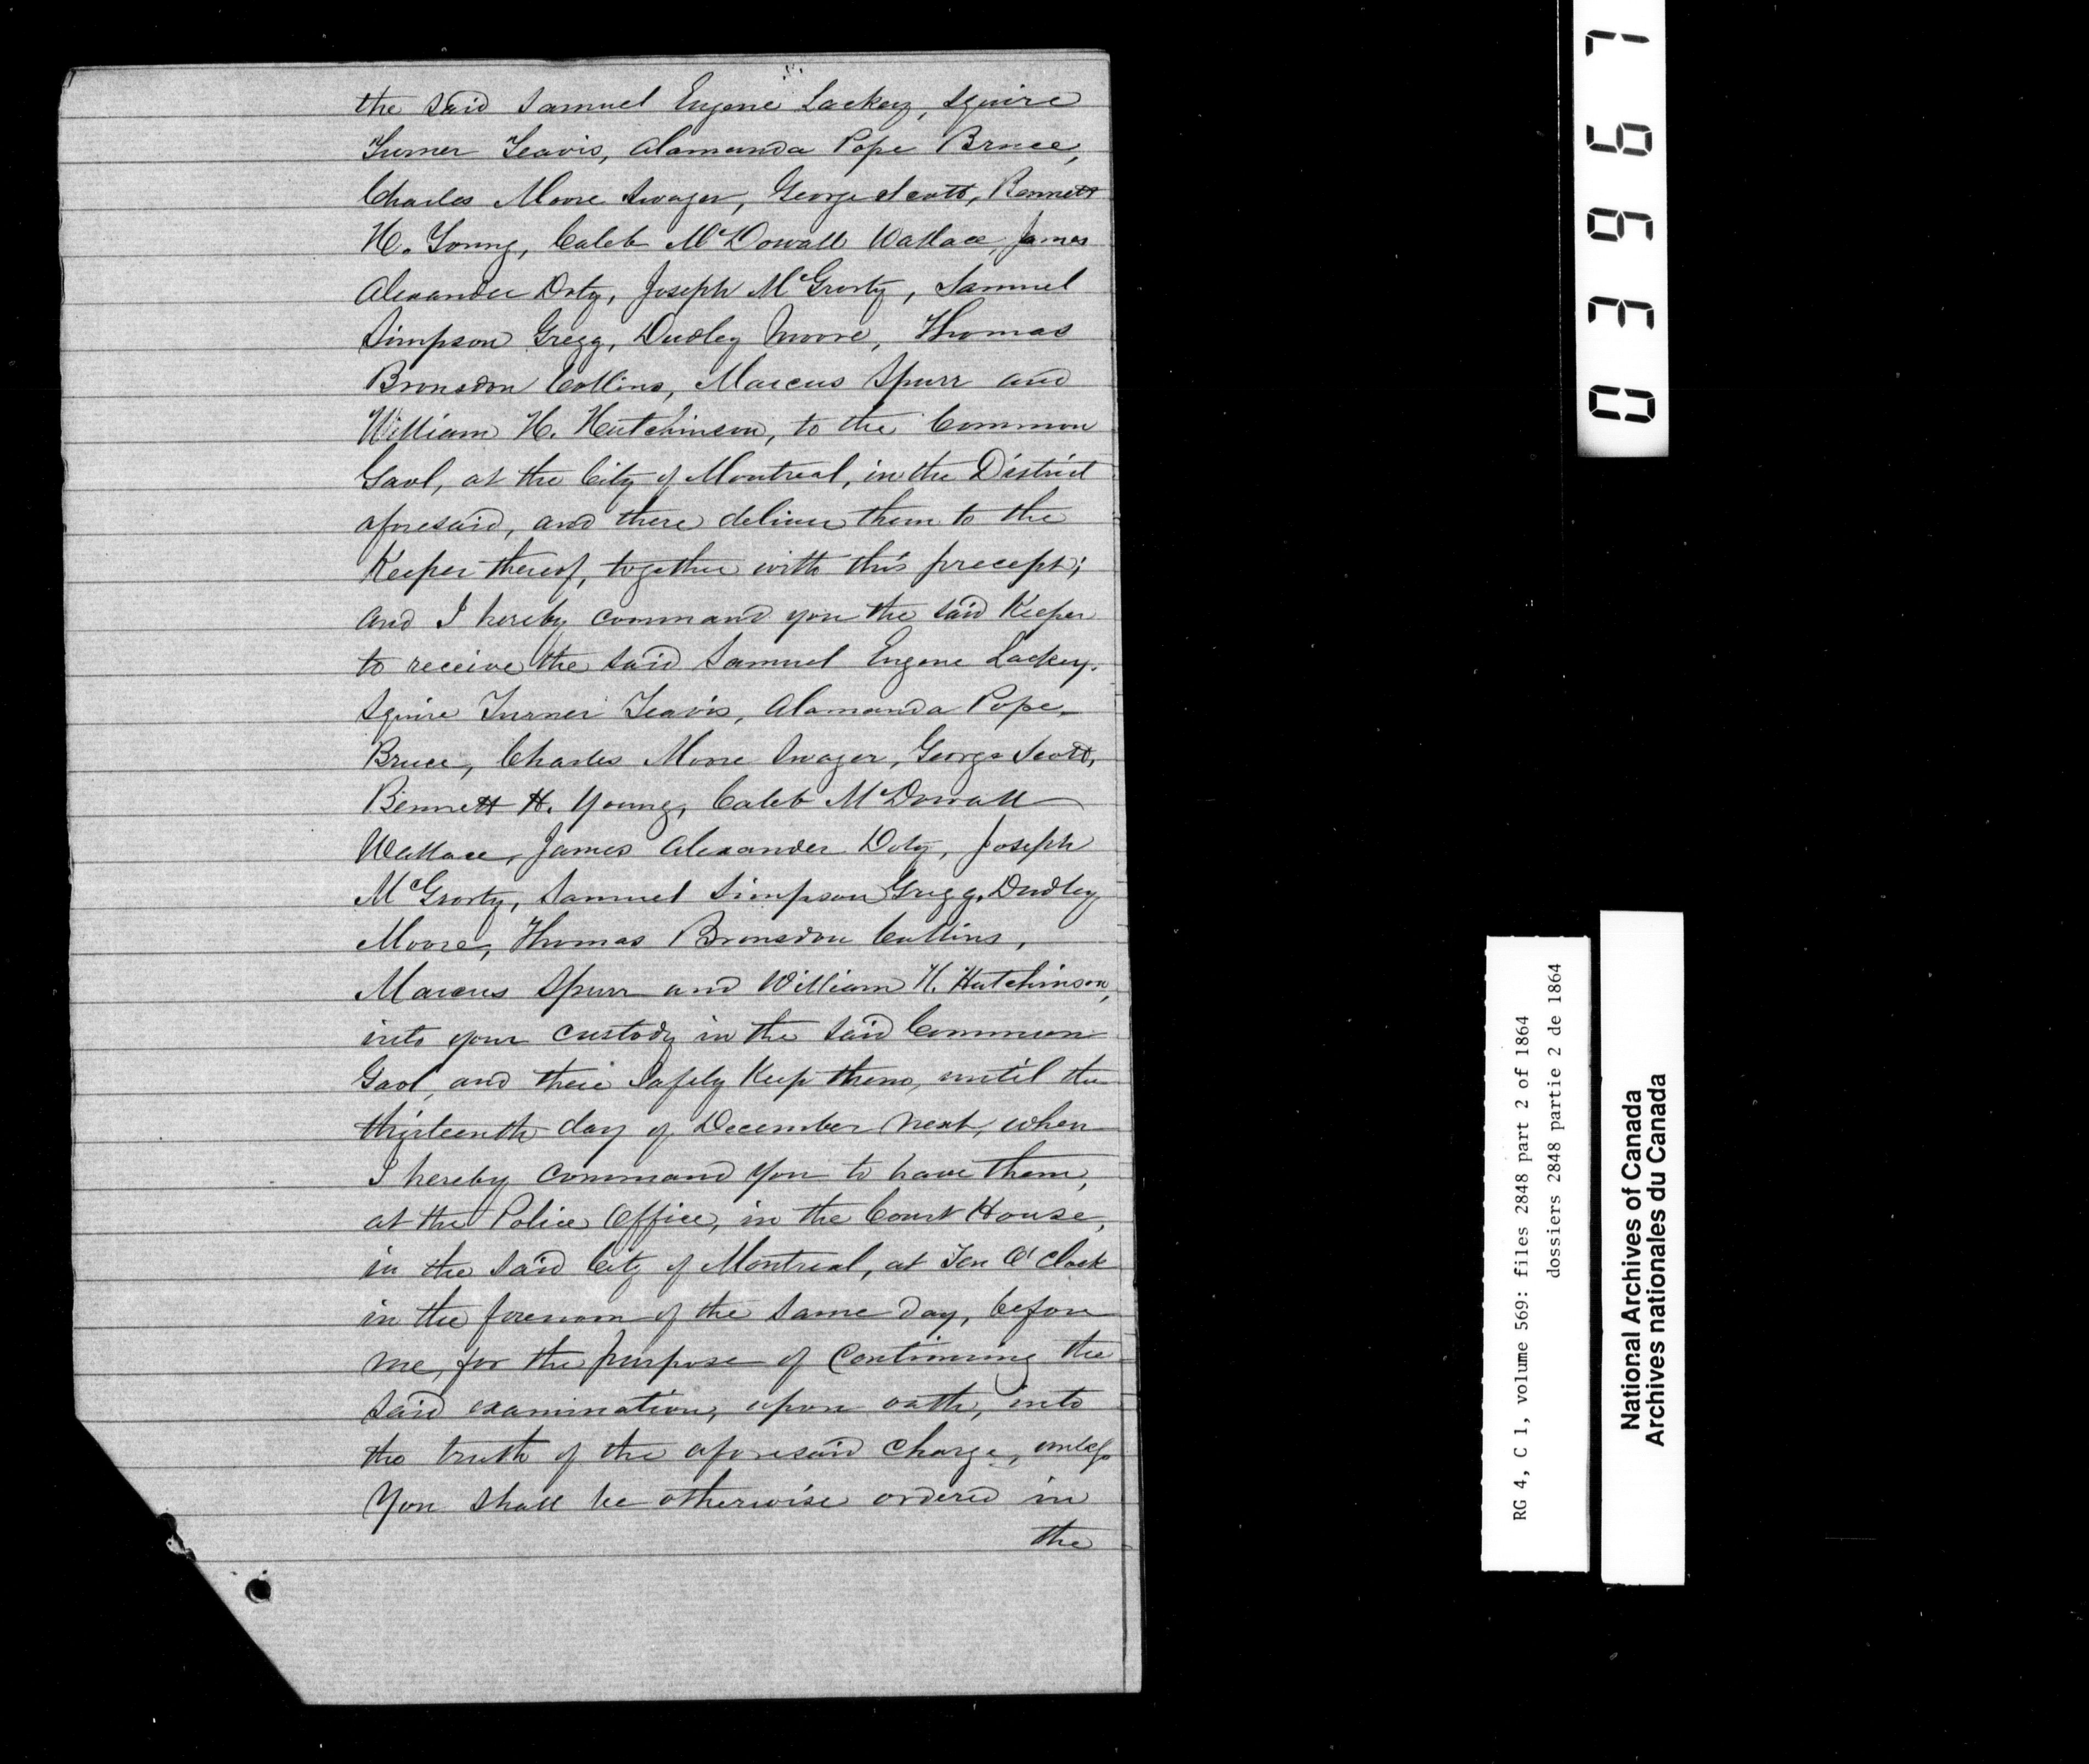 the said Samuel Eugene Lackey, Squire
Turner Teavis, Alamanda Pope Bruce,
Charles Moore Swager, George Scott, Bennett
H. Young, Caleb McDowall Wallace, James
Alexander Doty, Joseph McGrorty, Samuel
Simpson Gregg, Dudley Moore, Thomas
Bronsdon Collins, Marcus Spurr and
William H. Hutchinson, to the Common
Gaol, at the City of Montreal, in the District
aforesaid, and there deliver them to the
Keeper thereof, together with this precept;
and I hereby command you the said Keeper
to receive the said Samuel Eugene Lackey.
Squire Turner Teavis, Alamanda Pope
Bruce, Charles Moore Swager, George Scott,
Bennett H. Young, Caleb McDowall
Wallace, James Alexander Doty, Joseph
McGrorty, Samuel Simpson Gregg, Dudley
Moore, Thomas Bronsdon Collins,
Marcus Spurr and William H. Hutchinson,
into your custody in the said Common
Gaol, and there safely keep them, until the
thirteenth day of December next, when
I hereby command you to have them,
at the Police Office, in the Court House,
in the said City of Montreal, at Ten O'Clock
in the forenoon of the same day, before
me, for the purpose of continuing the
said examination, upon oath, into
the truth of the aforesaid charge, unless
you shall be otherwise ordered in
the
03967
RG 4, C 1, volume 569: files 2848 part 2 of 1864
dossiers 2848 partie 2 de 1864
National Archives of Canada
Archives nationales du Canada